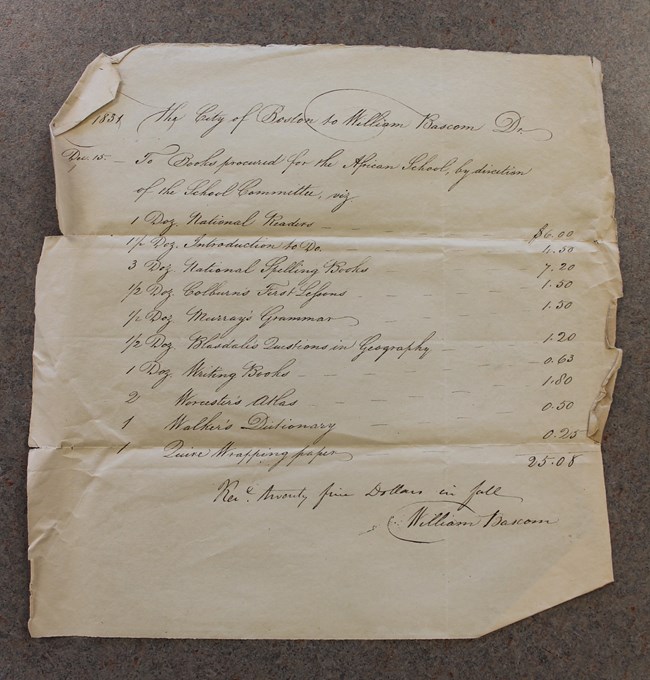 1831 The City of Boston to William Bascom Dr.
Dec. 15. — To Books procured for the African School, by direction
of the School Committee, viz
1 Doz. National Readers $6.00
1/2 Doz. Introduction to Do. 4.50
3 Doz. National Spelling Books 7.20
1/2 Doz. Colburn's First Lessons 1.50
1/2 Doz. Murray's Grammar 1.50
1/2 Doz. Blasdale's Questions in Geography 1.20
1 Doz. Writing Books 0.63
2 Worcester's Atlas 1.80
1 Walker's Dictionary 0.50
1 Quire Wrapping paper 0.25
25.08
Recd. twenty five Dollars in full
William Bascom